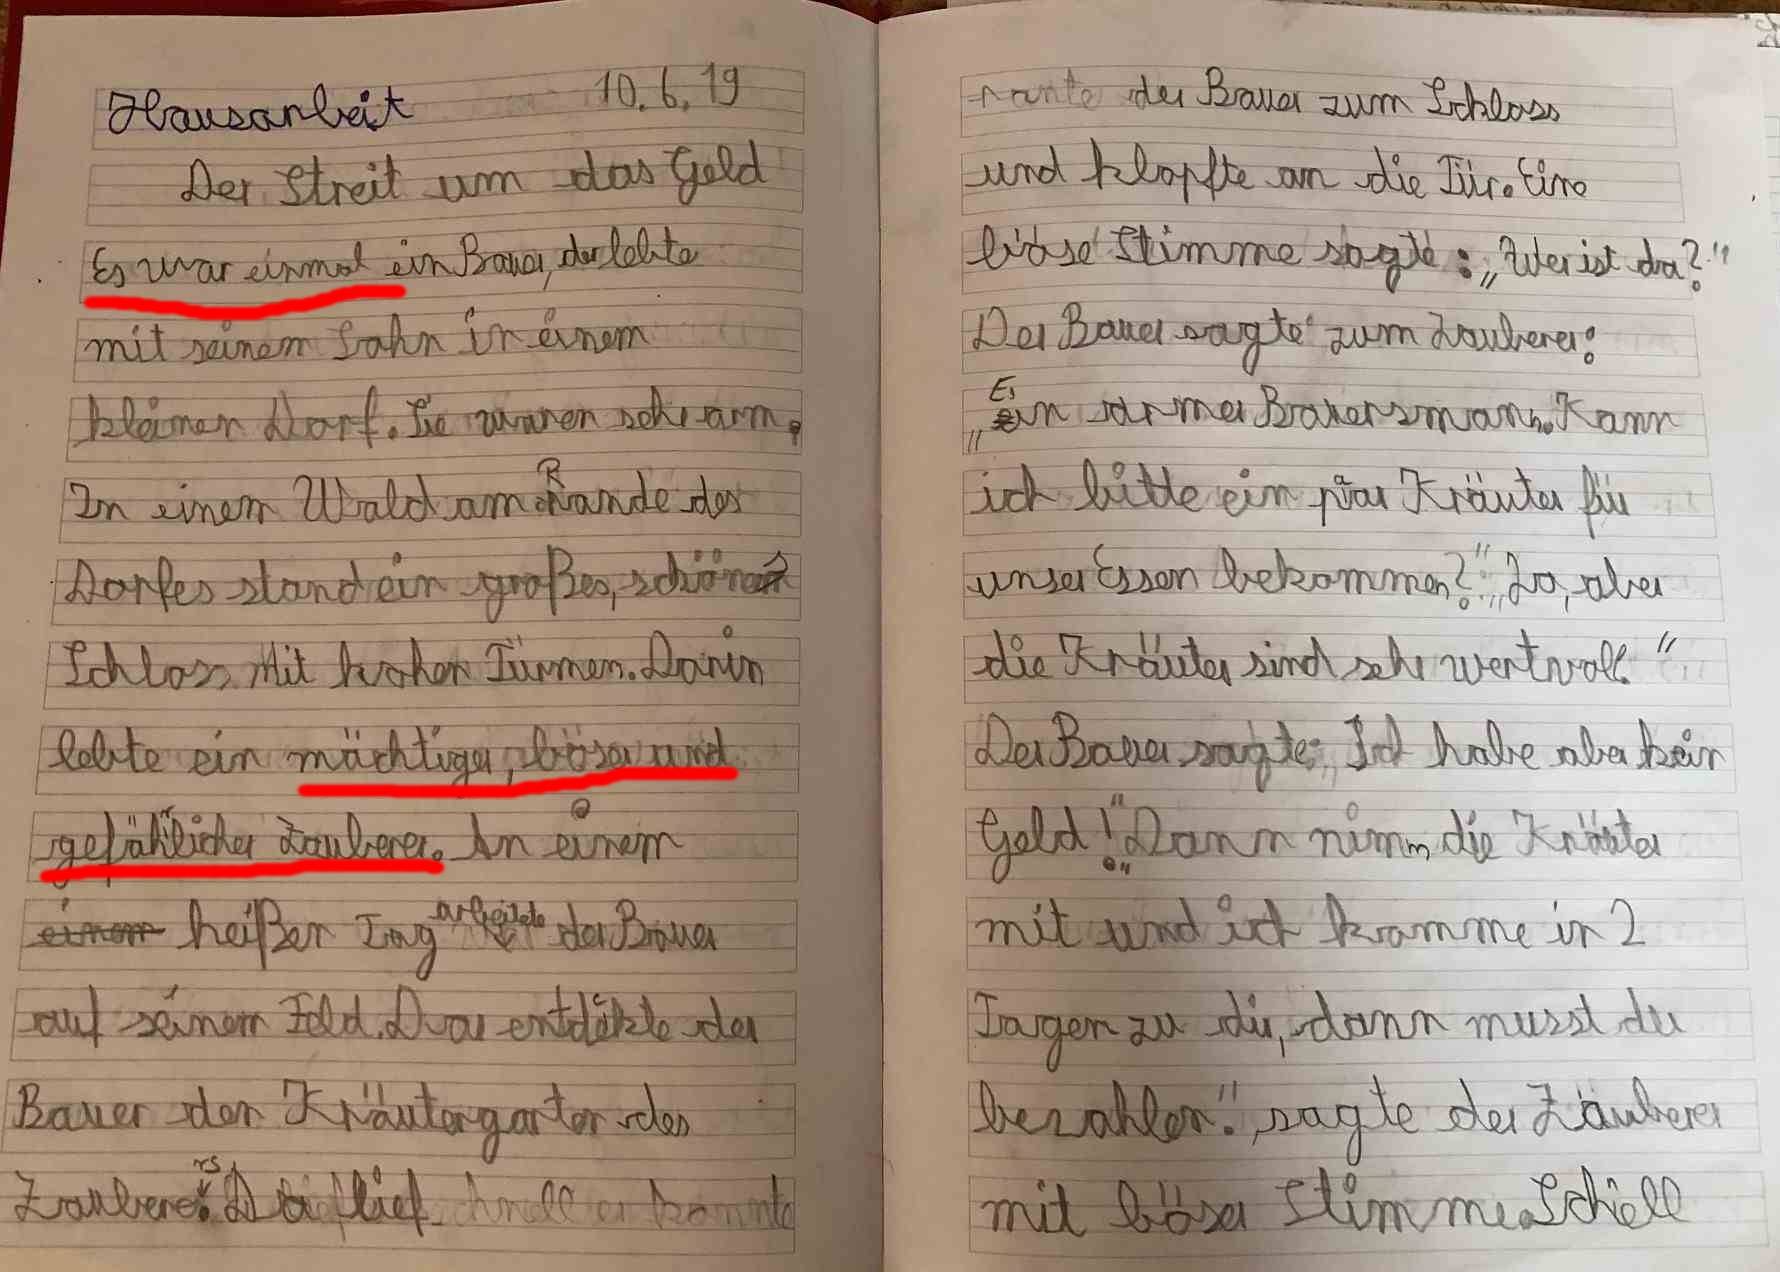 Hausarbeit 10.6.19
Der Streit um das Geld
Es war einmal ein Bauer, der lebte
mit seinem Sohn in einem
kleinen Dorf. Sie waren sehr arm.
In einem Wald am Rande des
Dorfes stand ein großes, schönes
Schloss mit hohen Türmen. Darin
lebte ein mächtiger, böser und
gefährlicher Zauberer. An einem
heißen Tag arbeitete der Bauer
auf seinem Feld. Da entdekte der
Bauer den Kräutergarten des
Zauberers. Da lief
rante der Bauer zum Schloss
und klopfte an die Tür. Eine
böse Stimme sagte: „Wer ist da?"
Der Bauer sagte zum Zauberer:
„Ein armer Bauersmann. Kann
ich bitte ein paar Kräuter für
unser Essen bekommen?" „Ja, aber
die Kräuter sind sehr wertvoll."
Der Bauer sagte: „Ich habe aber kein
Geld!" „Dann nimm die Kräuter
mit und ich komme in 2
Tagen zu dir, dann musst du
bezahlen", sagte der Zäuberer
mit böser Stimme. Schell